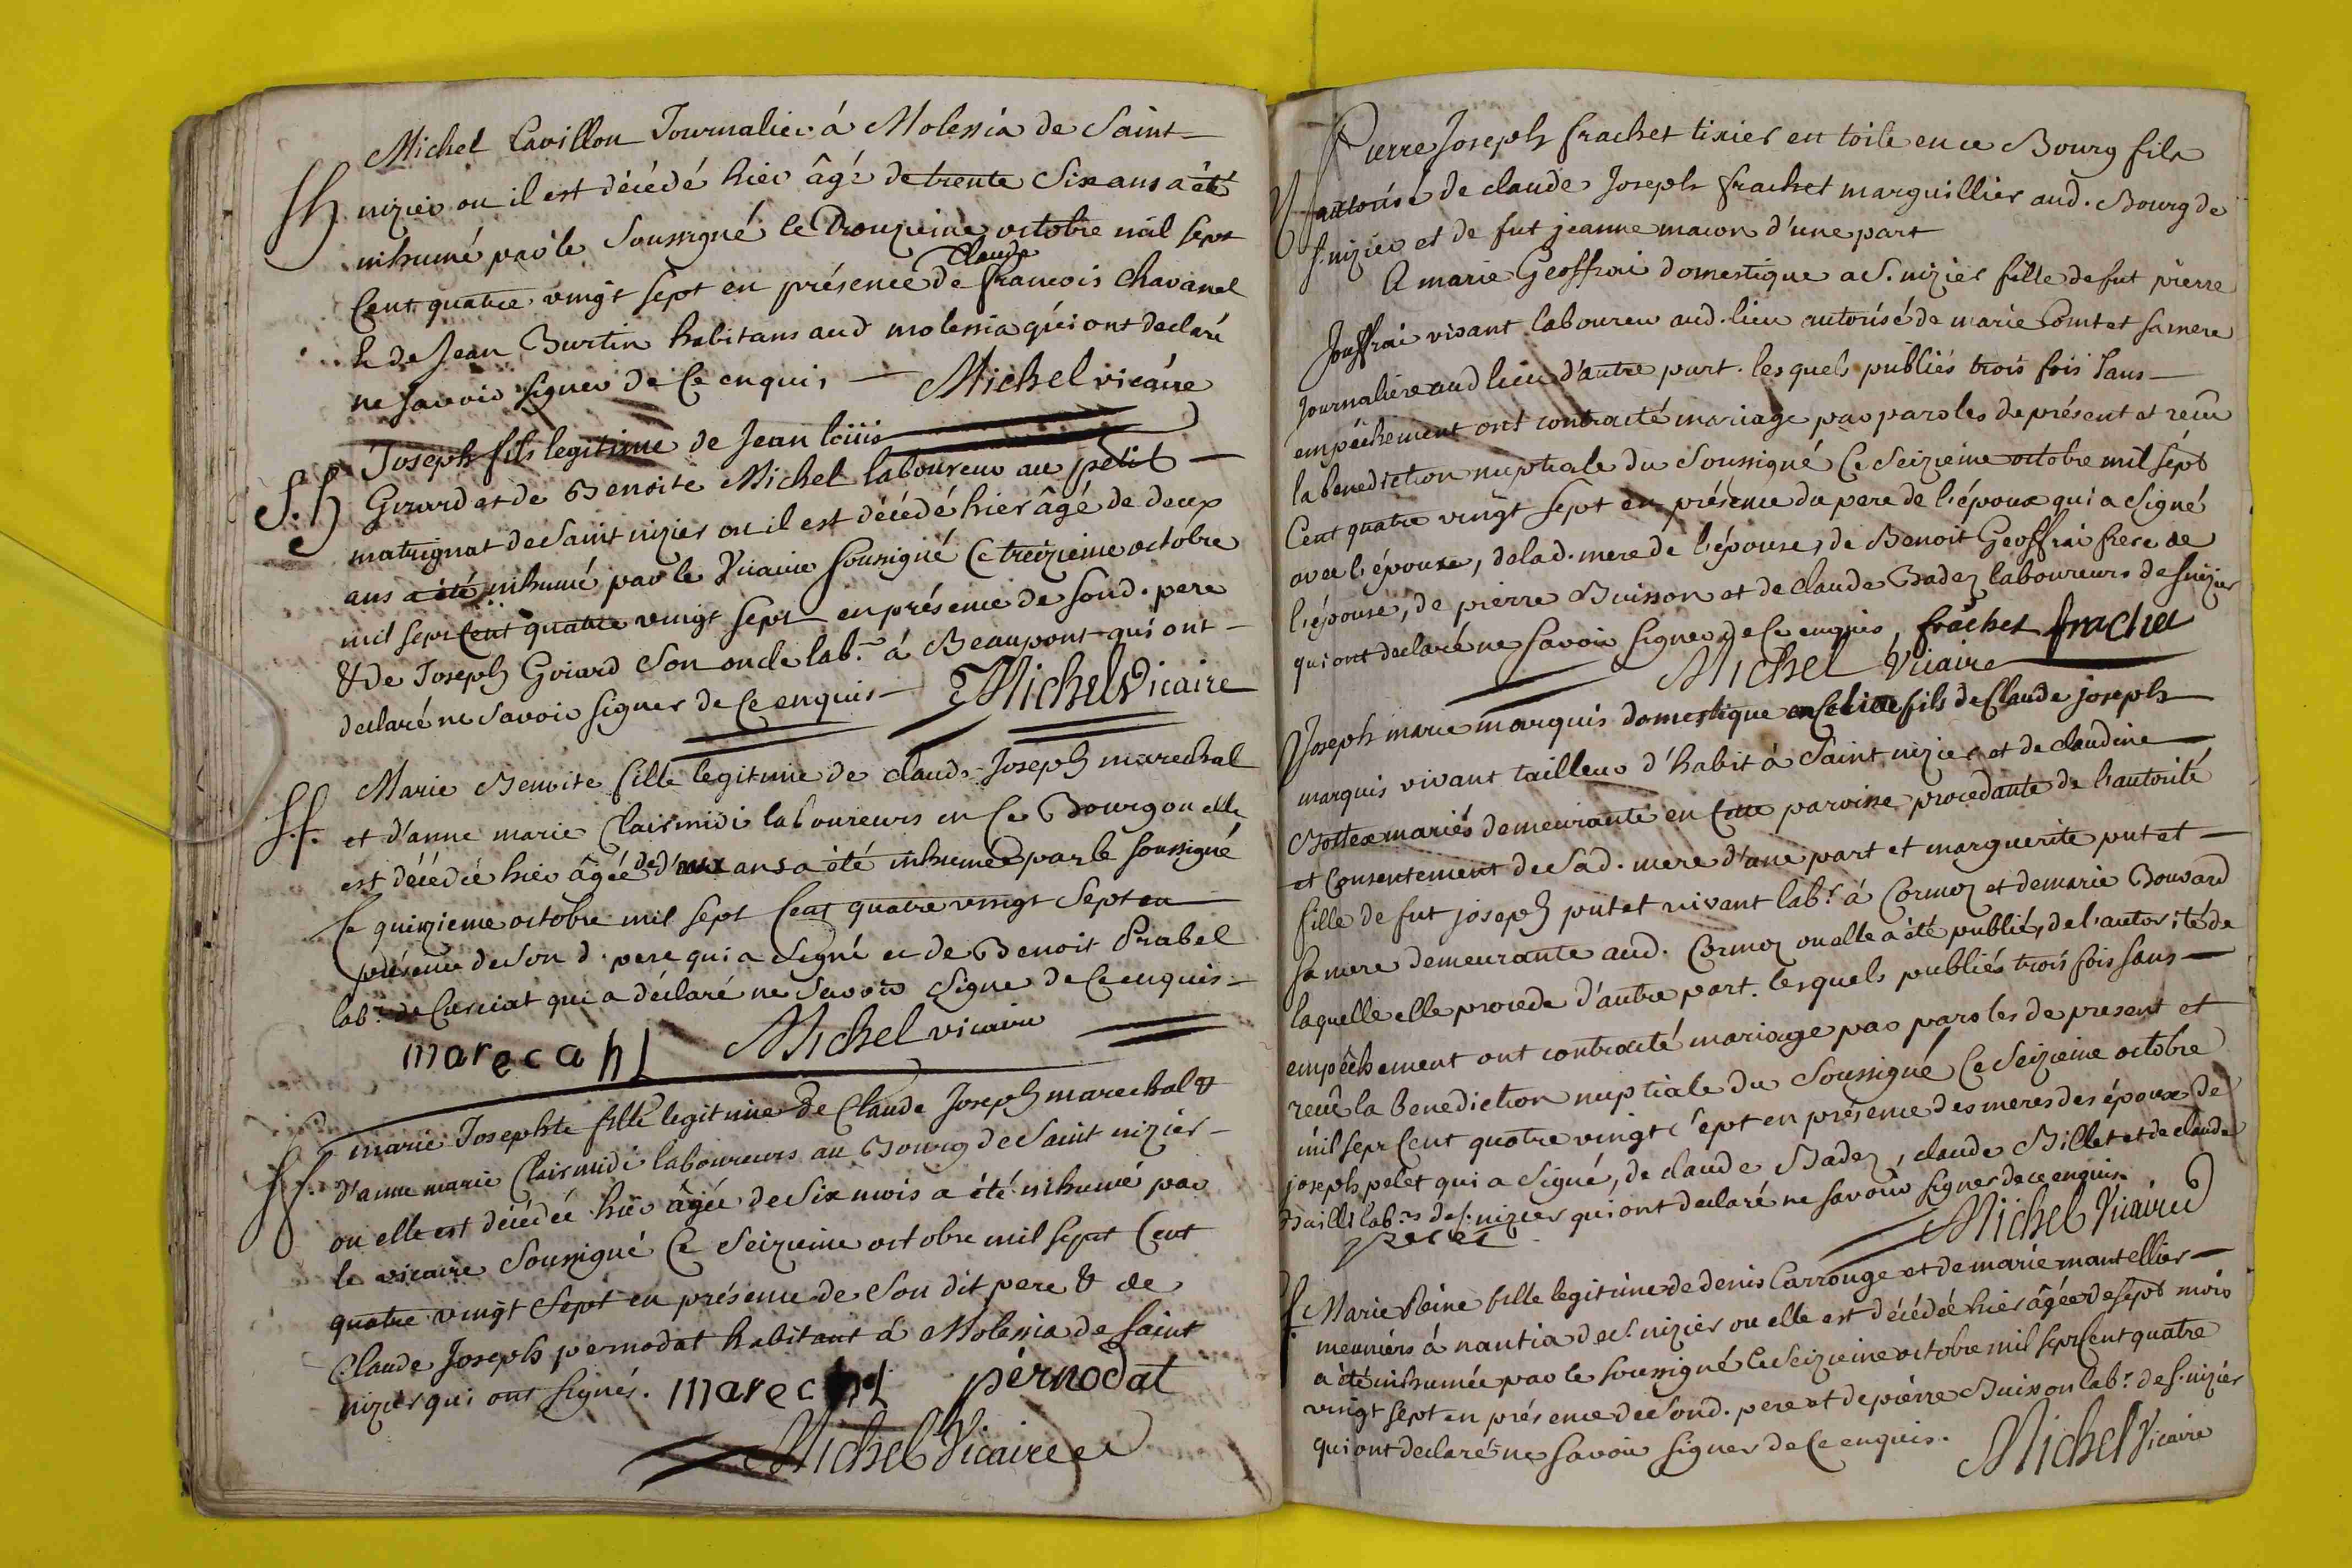 Michel Cavillon Journalier á Molessia de Saint
Sh nizier ou il est décédé hier âgé de trente Six ans a été
inhumé par le Soussigné le Douzieme octobre mil sept
Claude
Cent quatre vingt sept en présence de francois Chavanel
& de Jean Burtin habitans aud molessia qui ont declaré
ne Savoir signer de Ce enquis — Michel vicaire
Joseph fils legitime de Jean loüis
S.h Girard et de Benoite Michel laboureur au petit —
matrignat de Saint nizier ou il est décédé hier âgé de deux
ans a été inhumé par le Vicaire Soussigné Ce treizieme octobre
mil sept Cent quatre vingt sept en présence de Sond. pere
& de Joseph Girard Son oncle lab.r á Beaupont qui ont —
declaré ne Savoir signer de Ce enquis — Michel Vicaire
Marie Benoite fille legitime de claude Joseph marechal
S.f. et d'anne marie Clairmidi laboureurs en Ce Bourg ou elle
est décédée hier âgée de deux ans a été inhumée par le soussigné
Ce quinzieme octobre mil sept Cent quatre vingt Sept en
présence de Son d. pere qui a Signé et de Benoit Prabel
lab.r de Curciat qui a déclaré ne Savoir Signe de Ce enquis —
marecahl Michel vicaire
marie Josephte fille legitime de Claude Joseph marechal &
S f. d'anne marie Clairmidi laboureurs au Bourg de Saint nizier —
ou elle est décédée hier âgée de Six mois a été inhumé par
le vicaire Soussigné Ce Seizieme octobre mil sept Cent
quatre vingt Sept en présence de Son dit pere & de
Claude Joseph pernodat habitant á Molessia de Saint
nizier qui ont signés. marechal pérnodat
Michel Vicaire
Pierre Joseph frachet tixier en toile en ce Bourg fils
autorisé de claude Joseph frachet marguillier aud. Bourg de
S. nizier et de fut jeanne macon d'une part
& marie Geoffrai domestique a S. nizier fille de fut pierre
Jouffrai vivant laboureur aud. lieu autorisé de marie Comtet sa mere
Journaliere aud lieu d'autre part. lesquels publiés trois fois sans —
empêchement ont contracté mariage par paroles de présent et reçu
la benediction nuptiale du Soussigné Ce Seizieme octobre mil sépt
Cent quatre vingt sept en présence du pere de l'époux qui a signé
avec l'époux, de lad. mere de l'épouse, de Benoit Geoffrai frere de
l'épouse, de pierre Buisson et de claude Badez laboureurs de S. nizier
qui ont declaré ne savoir signer de Ce enquis, frachet frachet
Michel Vicaire
Joseph marie marquis domestique en Ce lieu fils de Claude joseph
marquis vivant tailleur d'habit à Saint nizier et de claudine
Bottex mariés demeurante en Cette paroisse procedante de l'autorité
et Consentement de Sad. mere d'une part et marguerite putet —
fille de fut joseph putet vivant lab.r à Cormoz et de marie Bouvard
Sa mere demeurante aud. Cormoz ou elle a été publié, de l'autorité de
laquelle elle procede d'autre part. lesquels publiés trois fois sans —
empêchement ont contracté mariage par paroles de present et
reçu la benediction nuptiale du Soussigné Ce Seizieme octobre
mil sept Cent quatre vingt sept en présence des meres des époux de
joseph pelet qui a signé, de claude Badez, claude Billet et de claude
Bailli lab.rs de S. nizier qui ont declaré ne savoir signer de ce enquis.
Michel Vicaire
Marie Reine fille legitime de denis Carrouge et de marie mantellier —
meuniérs á nantia de S. nizier ou elle est décédée hier âgée de sept mois
a été inhumée par le soussigné le Seizieme octobre mil sept Cent quatre
vingt sept en présence de Sond. pere et de pierre Buisson lab.r de S. nizier
qui ont declaré ne savoir signer de Ce enquis. Michel Vicaire